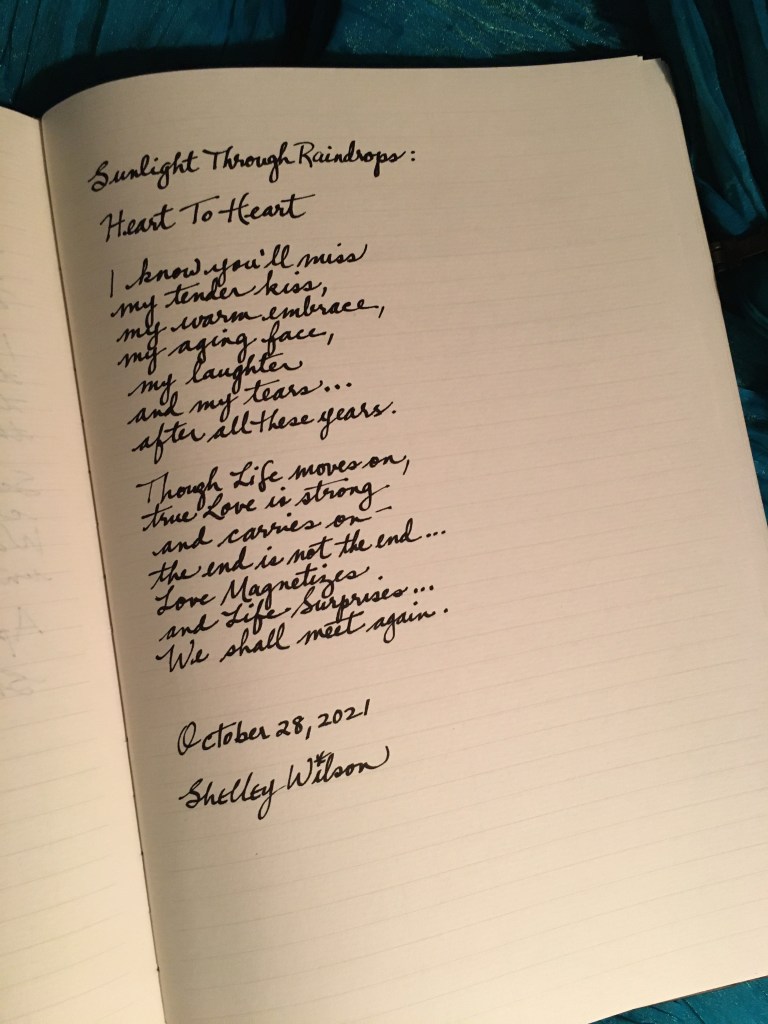 Sunlight Through Raindrops:
Heart To Heart
I know you'll miss
my tender kiss,
my warm embrace,
my aging face,
my laughter
and my tears...
after all these years.
Though Life moves on,
true Love is strong
and carries on —
the end is not the end...
Love Magnetizes
and Life Surprises...
We shall meet again.
October 28, 2021
Shelley Wilson